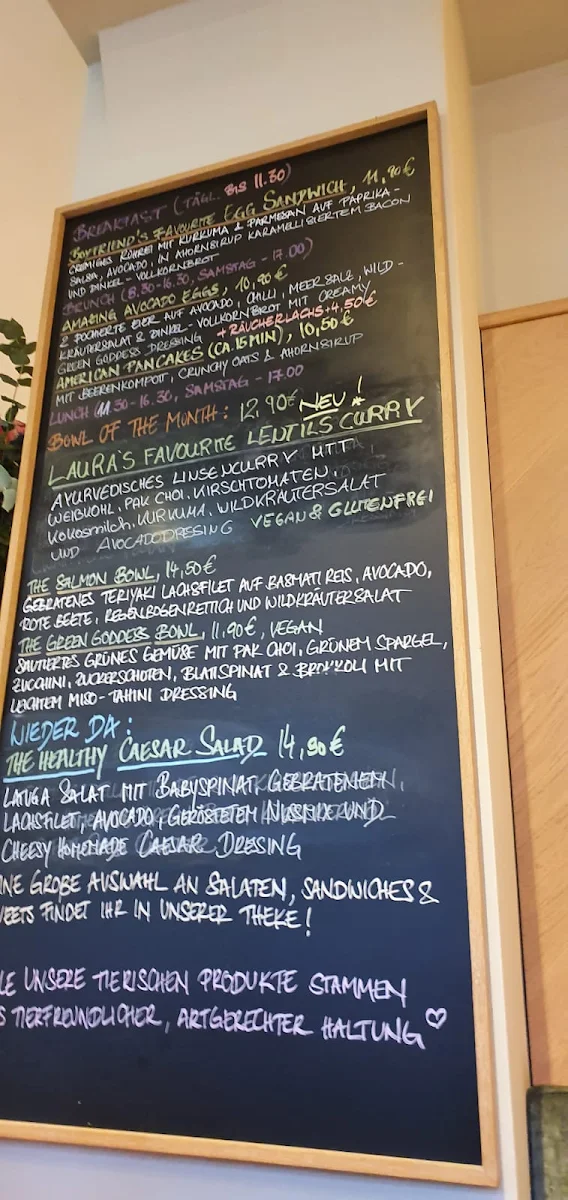 BREAKFAST (TÄGL. BIS 11.30)
BOYFRIEND'S FAVOURITE EGG SANDWICH, 11,90€
CREMIGES RÜHREI MIT KURKUMA & PARMESAN AUF PAPRIKA-
SALSA, AVOCADO, IN AHORNSIRUP KARAMELLISIERTEM BACON
UND DINKEL-VOLLKORNBROT
BRUNCH (8.30-16.30, SAMSTAG -17.00)
AMAZING AVOCADO EGGS, 10,90€
2 POCHIERTE EIER AUF AVOCADO, CHILLI, MEERSALZ, WILD-
KRÄUTERSALAT & DINKEL-VOLLKORNBROT MIT CREAMY
GREEN GODDESS DRESSING +RÄUCHERLACHS+4.50€
AMERICAN PANCAKES (CA. 15 MIN), 10,50€
MIT BEERENKOMPOTT, CRUNCHY OATS & AHORNSIRUP
LUNCH (11.30-16.30, SAMSTAG -17.00
BOWL OF THE MONTH: 12,90€ NEU!
LAURA'S FAVOURITE LENTILS CURRY
AYURVEDISCHES LINSENCURRY MIT
WEIßKOHL, PAK CHOI, KIRSCHTOMATEN,
KOKOSMILCH, KURKUMA, WILDKRÄUTERSALAT
UND AVOCADODRESING VEGAN & GLUTENFREI
THE SALMON BOWL, 14,50€
GEBRATENES TERIYAKI LACHSFILET AUF BASMATI REIS, AVOCADO,
ROTE BEETE, REGENBOGENRETTICH UND WILDKRÄUTERSALAT
THE GREEN GODDESS BOWL, 11.90€, VEGAN
SAUTIERTES GRÜNES GEMÜSE MIT PAK CHOI, GRÜNEM SPARGEL,
ZUCCHINI, ZUCKERSCHOTEN, BLATTSPINAT & BROKKOLI MIT
LEICHTEM MISO-TAHINI DRESSING
WIEDER DA:
THE HEALTHY CAESAR SALAD 14,90€
LATUGA SALAT MIT BABYSPINAT, GEBRATENEN,
LACHSFILET, AVOCADO, GERÖSTETEN UND
CHEESY HOMEMADE CAESAR DRESING
INE GROßE AUSWAHL AN SALATEN, SANDWICHES &
EETS FINDET IHR IN UNSERER THEKE!
LE UNSERE TIERISCHEN PRODUKTE STAMMEN
S TIERFREUNDLICHER, ARTGERECHTER HALTUNG ♡